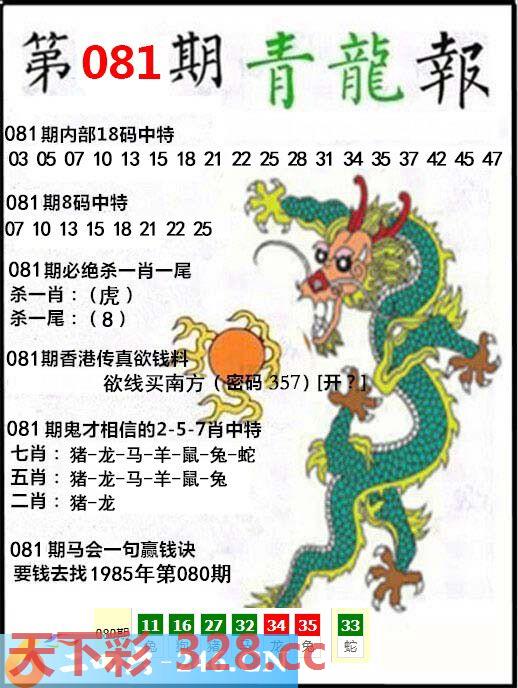 第081期青龍報
081期内部18码中特
03 05 07 10 13 15 18 21 22 25 28 31 34 35 37 42 45 47
081期8码中特
07 10 13 15 18 21 22 25
081期必绝杀一肖一尾
杀一肖：（虎）
杀一尾：（8）
081期香港传真欲钱料
欲线买南方（密码 357）[开？]
081期鬼才相信的2-5-7肖中特
七肖： 猪-龙-马-羊-鼠-兔-蛇
五肖： 猪-龙-马-羊-鼠-兔
二肖： 猪-龙
081期马会一句赢钱诀
要钱去找1985年第080期
080期 11 16 27 32 34 35 33
兔 狗 猪 龙 兔 蛇
天下彩-328.cc